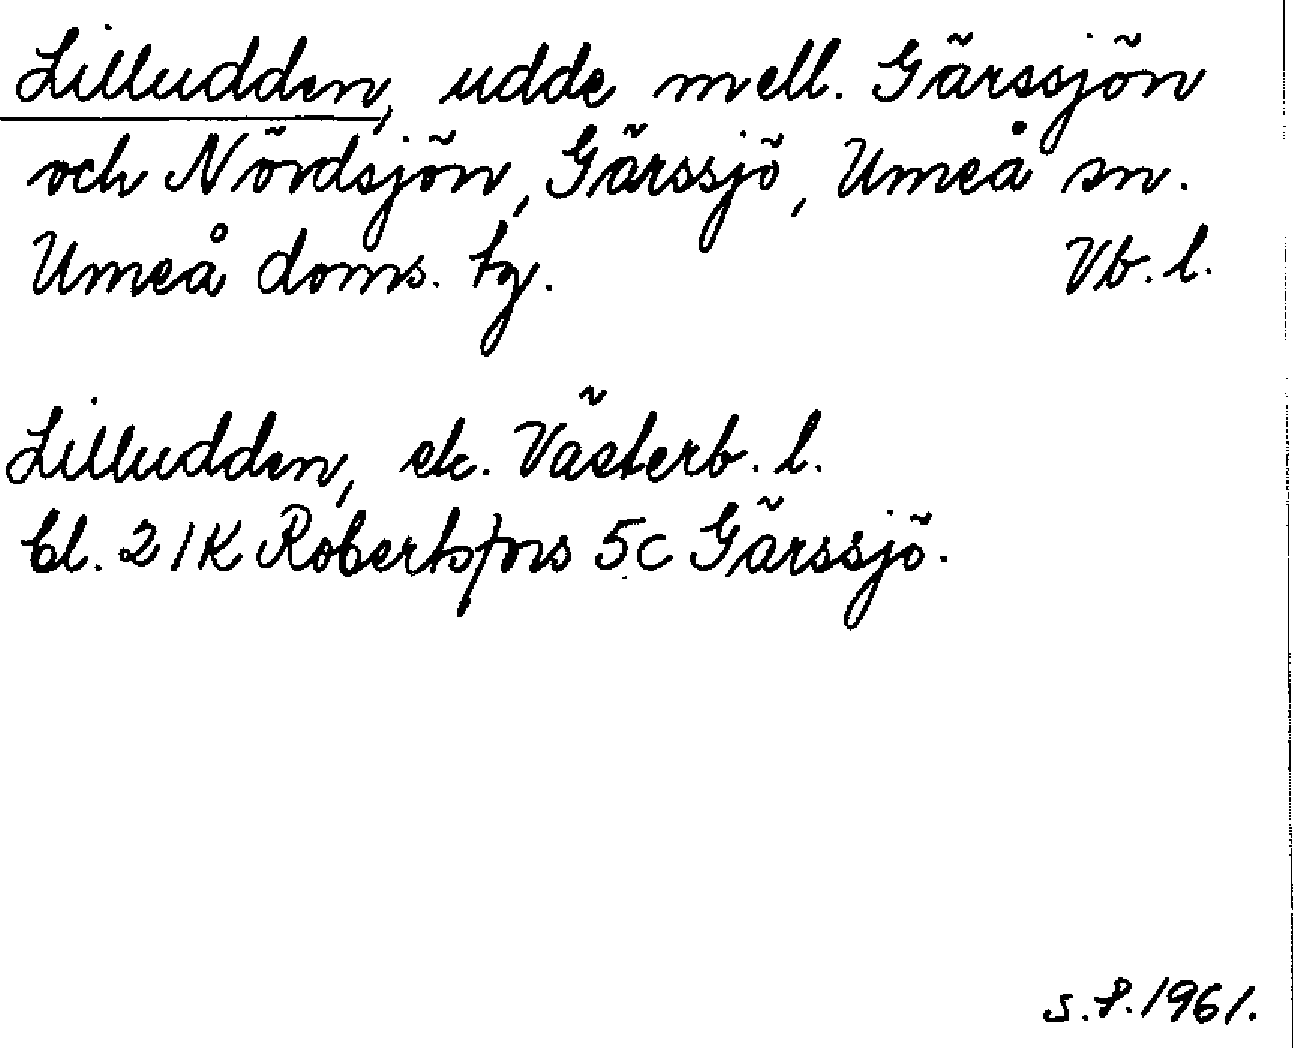 Lilludden, udde mell. Gärssjön
och Nördsjön, Gärssjö, Umeå sn.
Umeå doms. tg. Vb. l.
Lilludden, ek. Västerb. l.
bl. 21K Robertsfors 5c Gärssjö.
S.P. 1961.